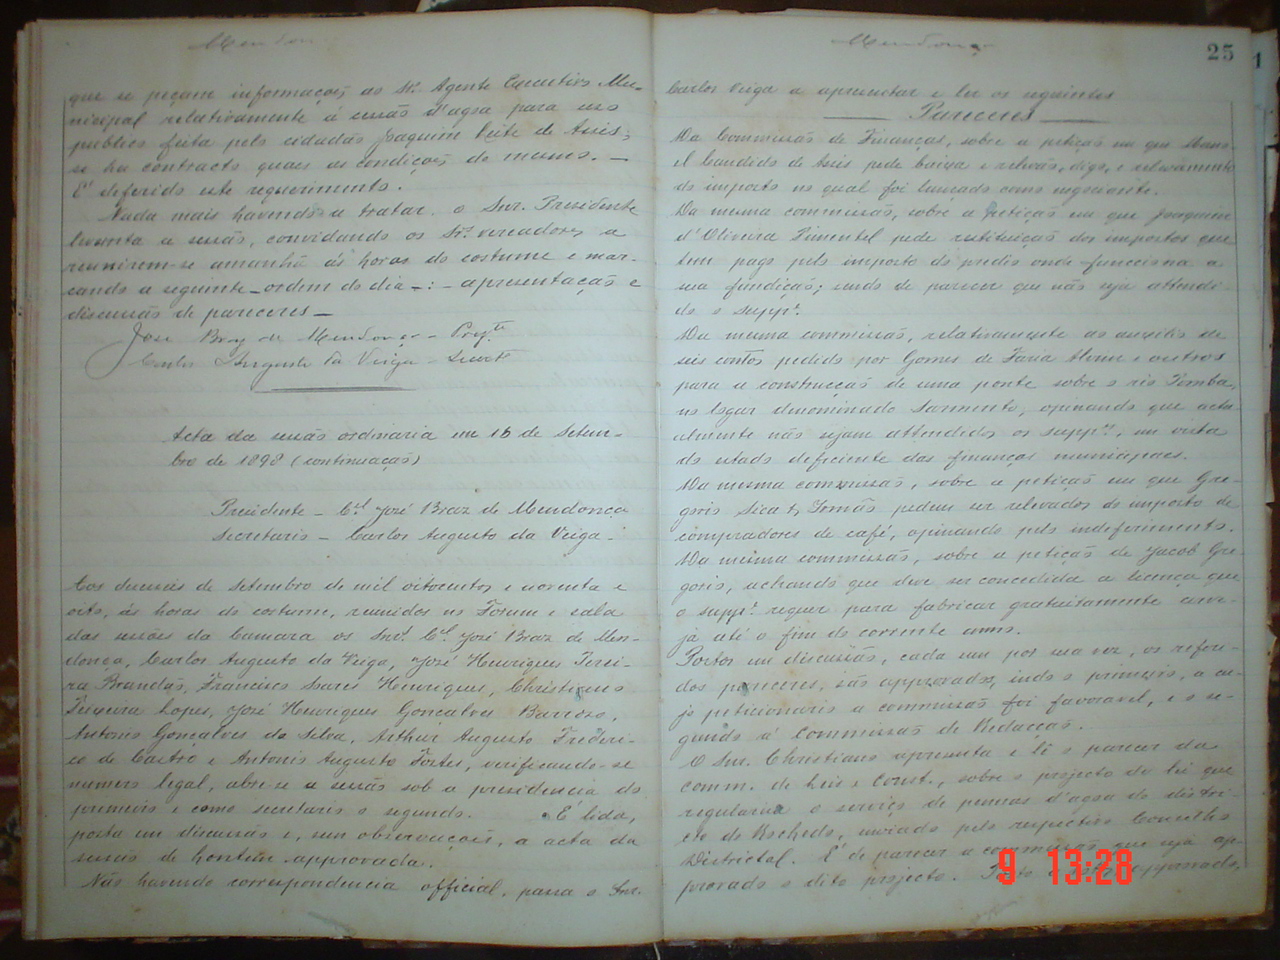 Mendonç
que se peçam informações ao Sr. Agente Executivo Mu-
nicipal relativamente á cessão d'agoa para uso
publico feita pelo cidadão Joaquim Leite de Assis;
se ha contracto quaes as condições do mesmo. —
É deferido este requerimento.
Nada mais havendo a tratar, o Snr. Presidente
levanta a sessão, convidando os Srs. vereadores a
reunirem-se amanhã ás horas do costume e mar-
cando a seguinte ordem do dia -:- apresentação e
discussão de pareceres —
José Braz de Mendonça - Prezte
Carlos Augusto da Veiga - Secretº
Acta da sessão ordinaria em 16 de Setem-
bro de 1898 (continuação)
Presidente - Cel José Braz de Mendonça
Secretario - Carlos Augusto da Veiga -
Aos deseseis de Setembro de mil oitocentos e noventa e
oito, ás horas do costume, reunidos no Forum e sala
das sessões da Camara os Snrs. Cel José Braz de Men-
donça, Carlos Augusto da Veiga, José Henriques Perei-
ra Brandão, Francisco Soares Henriques, Christiano
Teixeira Lopes, José Henriques Gonçalves Barroso,
Antonio Gonçalves da Silva, Arthur Augusto Frederi-
co de Castro e Antonio Augusto Fortes, verificando-se
numero legal, abre-se a sessão sob a presidencia do
primeiro e como secretario o segundo. É lida,
posta em discussão e, sem observações, a acta da
sessão de hontem approvada.
Não havendo correspondencia official, passa o Snr.
Mendonça
25
Carlos Veiga a apresentar e ler os seguintes
— Pareceres —
Da Commissão de Finanças, sobre a petição em que Mano-
el Candido de Assis pede baixa e relevão, digo, e relevamento
do imposto no qual foi lançado como negociante.
Da mesma commissão, sobre a petição em que Joaquim
d'Oliveira Pimentel pede restituição dos impostos que
tem pago pelo imposto do predio onde funcciona a
sua fundição; sendo de parecer que não seja attendi-
do o suppe.
Da mesma commissão, relativamente ao auxilio de
seis contos pedido por Gomes de Faria Alvim e outros
para a construcção de uma ponte sobre o rio Pomba,
no logar denominado Sarmento, opinando que actu-
almente não sejam attendidos os suppes, em vista
do estado deficiente das finanças municipaes.
Da mesma commissão, sobre a petição em que Gre-
gorio Sica & Irmão pedem ser relevados do imposto de
compradores de café, opinando pelo indeferimento.
Da mesma commissão, sobre a petição de Jacob Gre-
gorio, achando que deve ser concedida a licença que
o suppe requer para fabricar gratuitamente cerve-
ja até o fim do corrente anno.
Postos em discussão, cada um por sua vez, os referi-
dos pareceres, são approvados, indo o primeiro, a cu-
jo peticionario a commissão foi favoravel, e o se-
gundo á Commissão de Redacção.
O Snr. Christiano apresenta e lê o parecer da
comm. de Leis e Const., sobre o projecto de lei que
regularisa o serviço de pennas d'agoa do distri-
cto do Rochedo, enviado pelo respectivo Conselho
Districtal. É de parecer a commissão que seja ap-
provado o dito projecto. approvado,
9 13:28